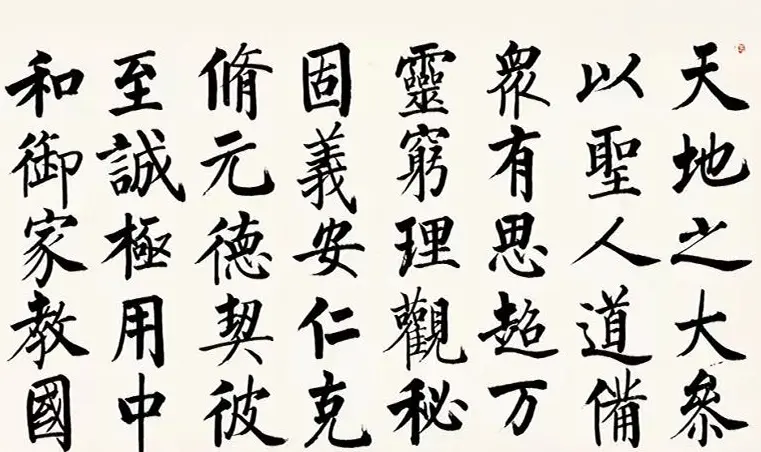 天地之大參
以聖人道備
衆有思超万
靈窮理觀秘
固義安仁克
脩元德契彼
至誠極用中
和御家教國